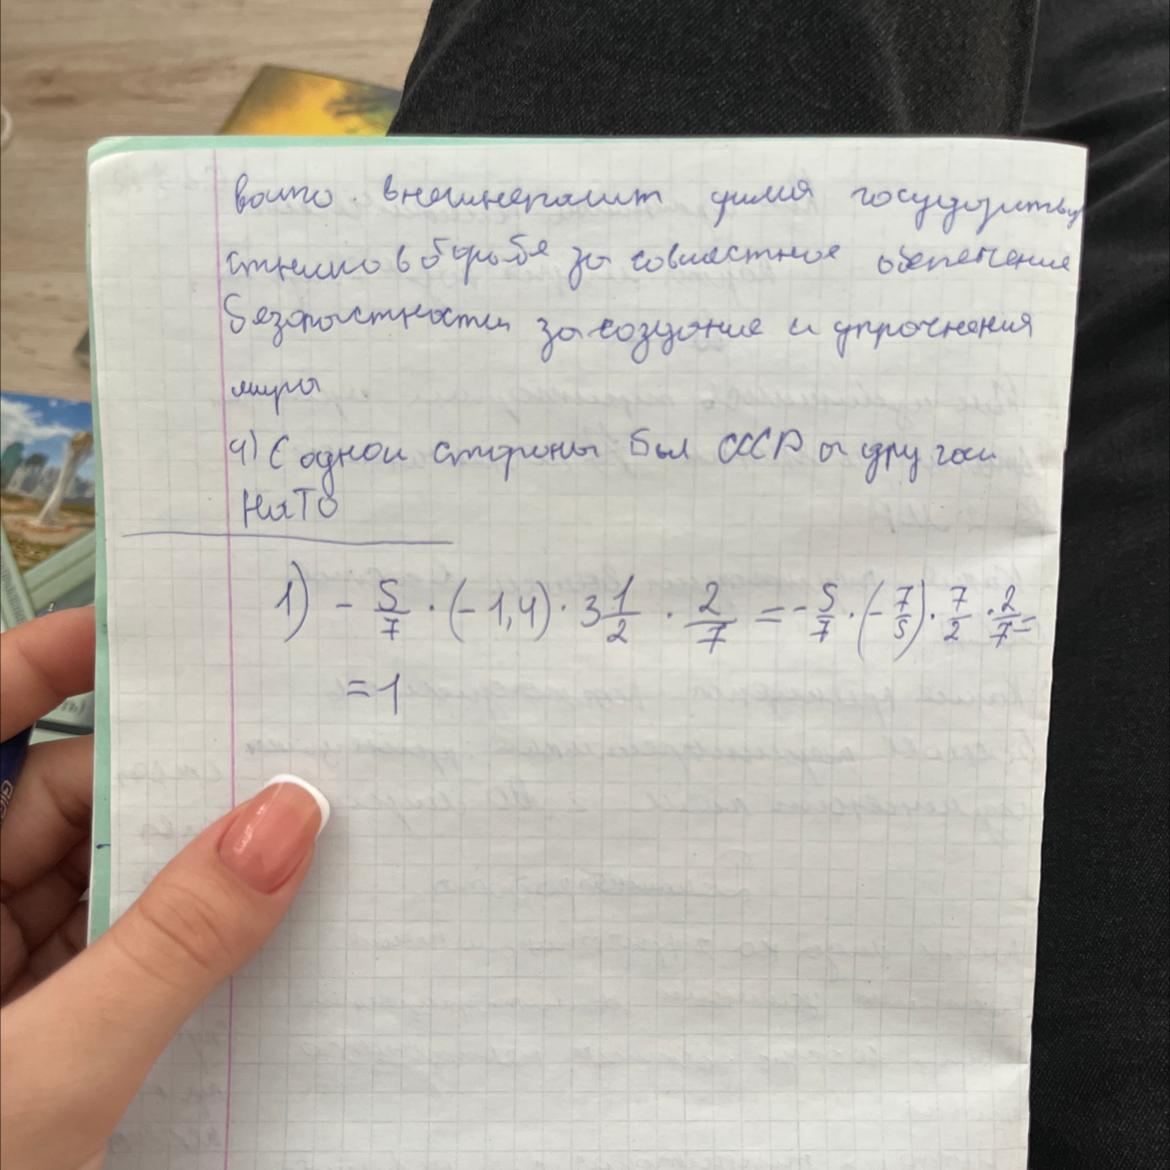 внешнеполит усилия государству
в борьбе за совместное обепечение
безопастности, за создание и упрочнения
мира
4) С одной стороны был СССР а другой
НАТО
1) - 5/7 · (-1,4) · 3 1/2 · 2/7 = - 5/7 · (- 7/5) · 7/2 · 2/7 =
= 1